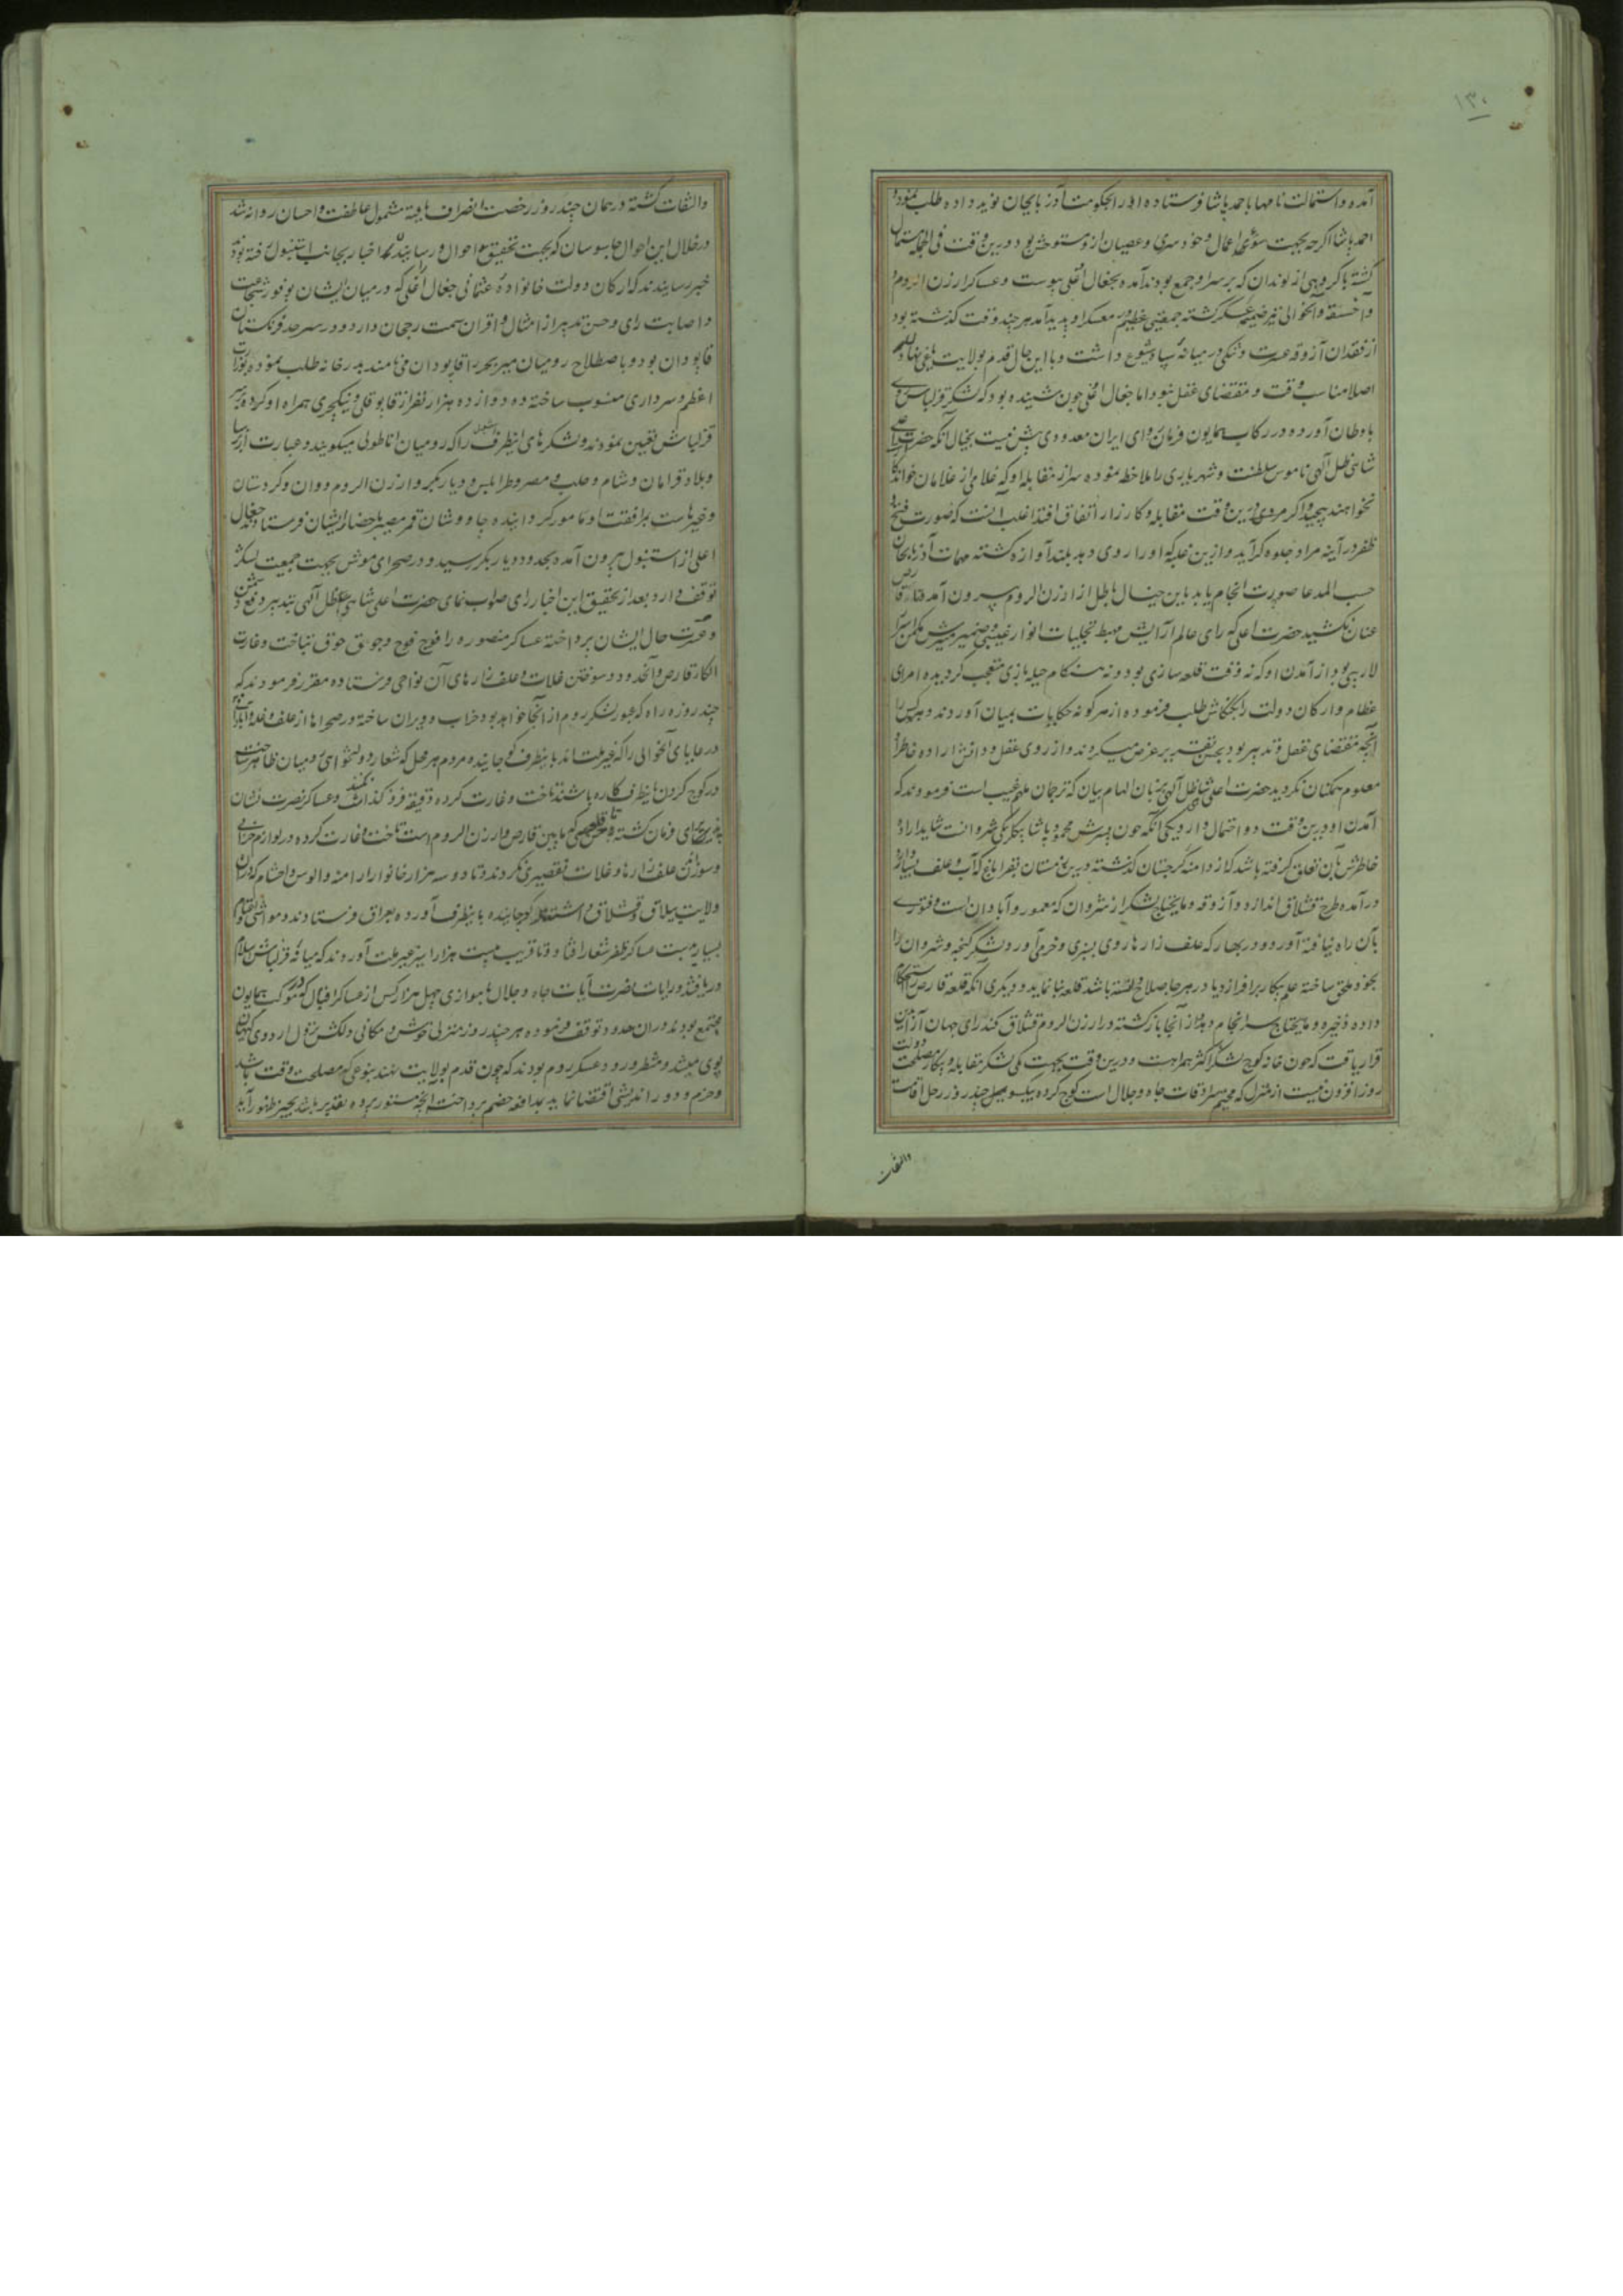 ۱۳۰
آمده و استمالت نامها باحمد پاشا فرستاده او را بحکومت آذربایجان نوید داده طلب نمود و
احمد پاشا اگرچه بجهت سوء اعمال و خودسری و عصیان ازو متوحش بود درین وقت فی الجمله مستمال
گشته با گروهی از لوندان که بر سر او جمع بودند آمده بجغال اغلی پیوست و عساکر ارزن الروم و
و آخسقه و آنحوالی نیز ضمیمه لشکر گشته جمعیتی عظیم در معسکر او پدید آمد هر چند وقت گذشته بود
از فقدان آزوقه عسرت و تنگی در میانه سپاه شیوع داشت و با این حال قدم بولایت یاغی نهادن
اصلا مناسب وقت و مقتضای عقل نبود اما جغال اغلی چون شنیده بود که لشکر قزلباش روی
باوطان آورده در رکاب همایون فرمانروای ایران معدودی بیش نیست بخیال آنکه حضرت اعلی
شاهی ظل آلهی ناموس سلطنت و شهریاری را ملاحظه نموده سر از مقابله او که غلامی از غلامان خواندگار
نخواهند پیچید و اگر درین وقت مقابله و کارزار اتفاق افتد اغلب آنست که صورت فتح و
ظفر در آینه مراد جلوه گر آید و ازین غلبه که او را روی دهد بلندآوازه گشته مهمات آذربایجان
حسب المدعا صورت انجام یابد باین خیال باطل از ارزن الروم بیرون آمده تا قارص
عنان نکشید حضرت اعلی که رای عالم آرایش مهبط تجلیات انوار غیبی و ضمیر منیرش مکمن اسرار
لاریبی بود از آمدن او که نه وقت قلعه سازی بود و نه هنگام حیله بازی متعجب گردیده امرای
عظام و ارکان دولت را بکنکاش طلب فرموده از هر گونه حکایات بمیان آوردند و هر کس را
آنچه مقتضای عقل و تدبیر بود بحسن تقریر بر عرض میکردند و از روی عقل و دانش اراده خاطر او
معلوم همکنان نگردید حضرت اعلی شاهی ظل آلهی بزبان الهام بیان که ترجمان ملهم غیب است فرمودند که
آمدن او درین وقت دو احتمال دارد یکی آنکه چون پسرش محمود پاشا بیکلربیکی شروانست شاید اراده
خاطرش بآن تعلق گرفته باشد که از دامنه گرجستان گذشته درین زمستان بقراباغ که آب و علف بسیار دارد
درآمده طرح قشلاق اندازد و آزوقه و مایحتاج لشکر از شروان که معمور و آبادان است و فتوری
بآن راه نیافته آورد و در بهار که علف زارها روی بسبزی و خرمی آورد لشکر گنجه و شروان را
بخود ملحق ساخته علم پیکار برافرازد یا در هر جا صلاح دانسته باشد قلعه بنا نماید و دیگری آنکه قلعه قارص استحکام
داده ذخیره و مایحتاج سرانجام دهد و از آنجا بازگشته در ارزن الروم قشلاق کند رای جهان آرا برین
قرار یافت که چون خانه کوچ لشکر اکثر همراهست و درین وقت بجهت کمی لشکر مقابله و پیکار مصلحت دولت
روزافزون نیست از منزل که مخیم سرادقات جاه و جلال است کوچ کرده بیکسو چند روز رحل اقامت
والتفات
والتفات گشته در همان چند روز رخصت انصراف یافته مشمول عاطفت و احسان روانه شد
در خلال این احوال جاسوسان که بجهت تحقیق احوال و رسانیدن اخبار بجانب استنبول رفته بودند
خبر رسانیدند که ارکان دولت خانواده عثمانی جغال اغلی را که در میان ایشان بوفور شجاعت
و اصابت رای و حسن تدبیر از امثال و اقران سمت رجحان دارد و در سرحد فرنگستان
قاپودان بود و باصطلاح رومیان میر بحر را قاپودان می نامند بدر خانه طلب نموده بوزارت
اعظم و سرداری منسوب ساخته و ده دوازده هزار نفر از قاپوقلی و ینکیچری همراه او کرده بر سر
قزلباش تعیین نمودند و لشکرهای اینطرف استنبول را که رومیان اناطولی میگویند و عبارت از
و بلاد قرامان و شام و حلب و مصر و طرابلس و دیاربکر و ارزن الروم و وان و کردستان
و غیرهاست برافقت او مامور گردانیده چاووشان قمر مسیر باحضار ایشان فرستاد و جغال
اغلی از استنبول بیرون آمده بحدود دیاربکر رسید و در صحرای موش بجهت جمعیت لشکر
توقف دارد بعد از تحقیق این اخبار رای صواب نمای حضرت اعلی شاهی ظل آلهی بتدبیر دفع دشمن
و حال ایشان پرداخته عساکر منصوره را فوج فوج و جوق جوق بتاخت و غارت
الکاء قارص و آنحدود و سوختن غلات و علف زارهای آن نواحی فرستاده مقرر فرمودند که
چند روزه راه که عبور لشکر روم از آنجا خواهد بود خراب و ویران ساخته در صحراها از علف و غله و آبادانی
و رعایای آنحوالی را که خیر ملت اند باینطرف کوچانیده مردم هر محل که شعار دولتخواهی در میان ظاهر ساخته
در کوچ کردن باینطرف کاره باشند تاخت و غارت کرده دقیقه فروگذاشت نکنند و عساکر نصرت نشان
فرمان گشته تا که مابین قارص و ارزن الروم است تاخت و غارت کرده در لوازم خرابی
و سوزاندن علف زارها و غلات تقصیری نکردند و تا دو سه هزار خانوار ارامنه و الوس و احشام که در آن
ولایت ییلاق و قشلاق داشتند کوچانیده باینطرف آورده بعراق فرستادند و مواشی و اغنام
بسیار بدست عساکر ظفر شعار افتاد و تا قریب بیست هزار اسیر غیر ملت آوردند که میانه قزلباش
و رایات نصرت آیات جاه و جلال با موازی چهل هزار کس از عساکر اقبال که در موکب همایون
مجتمع بودند در آن حدود توقف فرموده هر چند روز منزلی خوش و مکانی دلکش نزول اردوی کیهان
پوی میشد و منتظر ورود عسکر روم بودند که چون قدم بولایت نهند بنوعی که مصلحت وقت باشد
و حزم و دوراندیشی اقتضا نماید بمدافعه خصم پرداخت آنچه مستور پرده تقدیر باشد بحیز ظهور آید